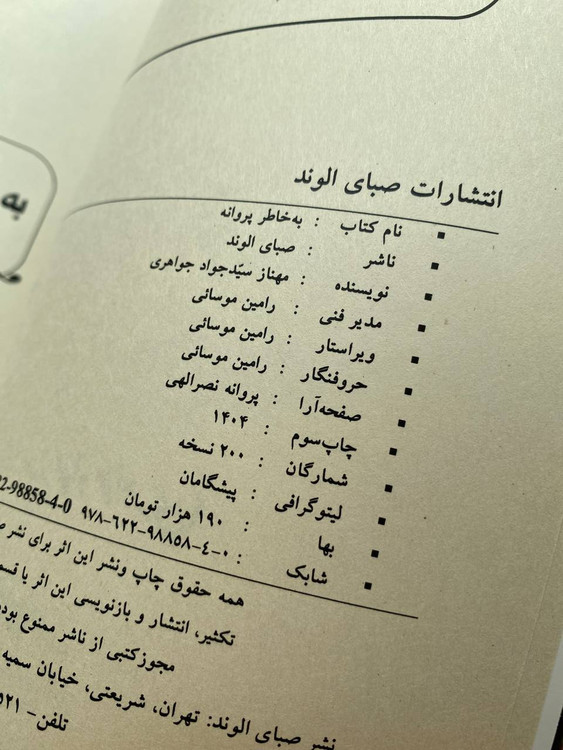 انتشارات صبای الوند
▪ نام کتاب : به‌خاطر پروانه
▪ ناشر : صبای الوند
▪ نویسنده : مهناز سیّدجواد جواهری
▪ مدیر فنی : رامین موسائی
▪ ویراستار : رامین موسائی
▪ حروفنگار : رامین موسائی
▪ صفحه‌آرا : پروانه نصرالهی
▪ چاپ‌سوم : ۱۴۰۴
▪ شمارگان : ۲۰۰ نسخه
▪ لیتوگرافی : پیشگامان
▪ بها : ۱۹۰ هزار تومان
▪ شابک : ۹۷۸-۶۲۲-۹۸۸۵۸-۴-۰ 98858-4-0
همه حقوق چاپ ونشر این اثر برای نشر
تکثیر، انتشار و بازنویسی این اثر یا
مجوزکتبی از ناشر ممنوع
نشر صبای الوند: تهران، شریعتی، خیابان سمیه
تلفن-
به